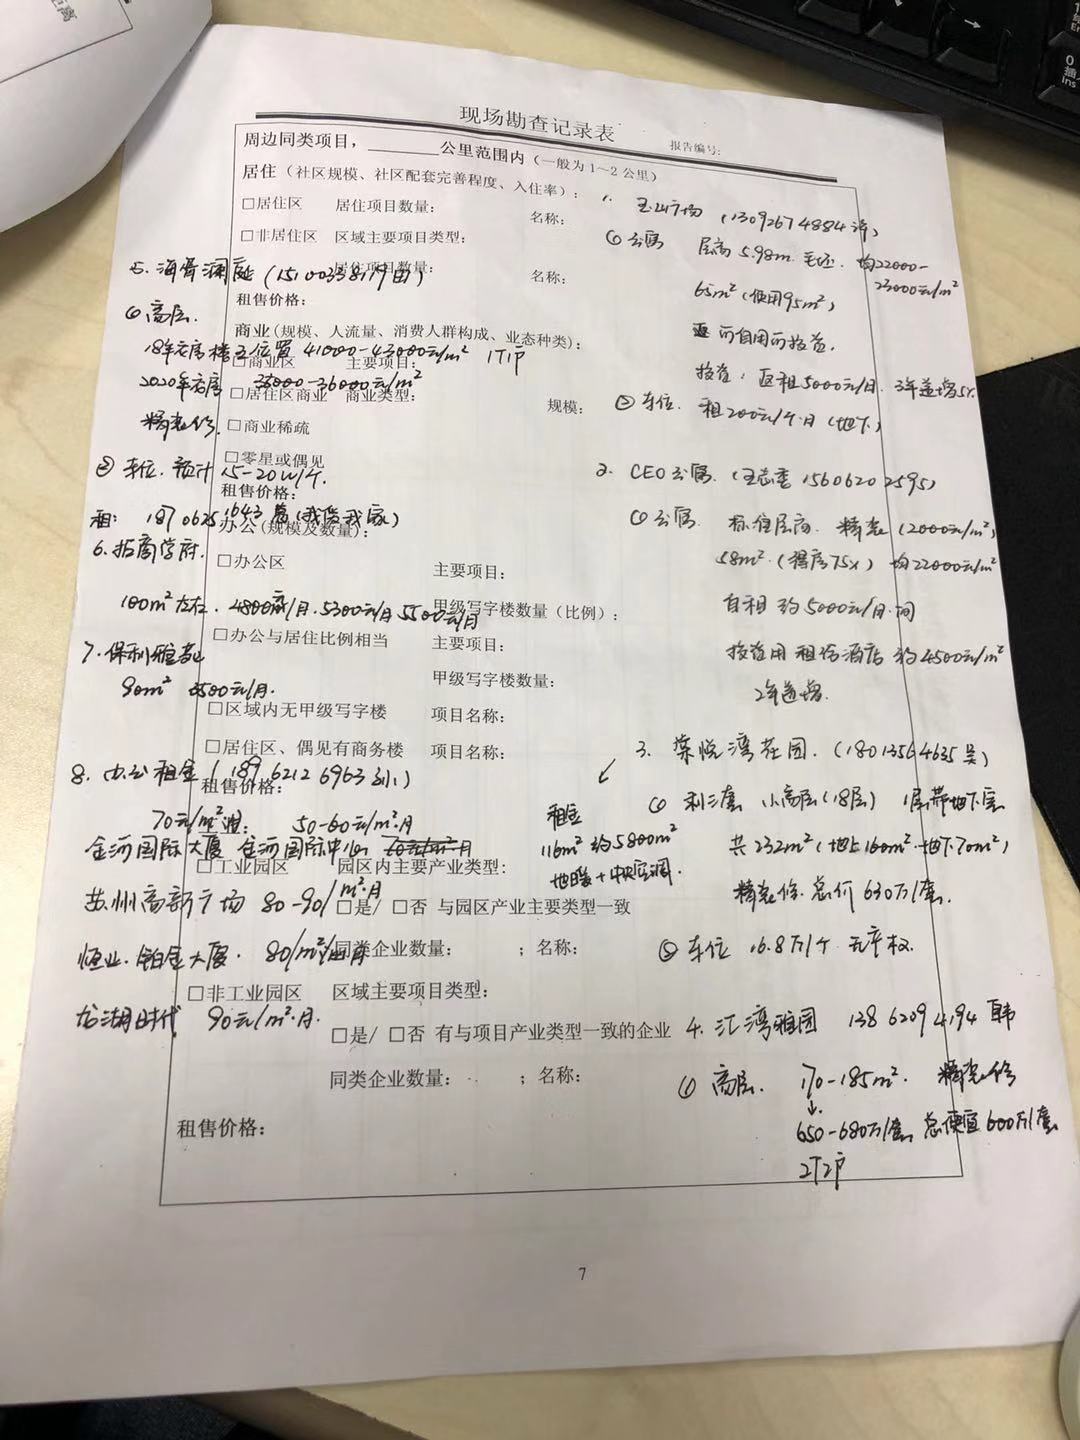 现场勘查记录表
报告编号:
周边同类项目，______公里范围内（一般为1～2公里）
居住（社区规模、社区配套完善程度、入住率）:
□居住区 居住项目数量: 名称:
□非居住区 区域主要项目类型:
居住项目数量: 名称:
租售价格:
商业(规模、人流量、消费人群构成、业态种类):
□商业区 主要项目:
□居住区商业 商业类型: 规模:
□商业稀疏
□零星或偶见
租售价格:
办公(规模及数量):
□办公区 主要项目:
甲级写字楼数量(比例):
□办公与居住比例相当 主要项目:
甲级写字楼数量:
□区域内无甲级写字楼 项目名称:
□居住区、偶见有商务楼 项目名称:
租售价格:
□工业园区 园区内主要产业类型:
□是/ □否 与园区产业主要类型一致
同类企业数量: ；名称:
□非工业园区 区域主要项目类型:
□是/ □否 有与项目产业类型一致的企业
同类企业数量: ；名称:
租售价格:
7
1. 玉山广场 (13092674884 许)
① 公寓 层高 5.98m. 毛坯. 均22000-
23000元/m²
65m² (使用95m²)
可自用可投资.
投资: 返租5000元/月. 3年递增5%
② 车位. 租200元/个·月 (地下)
2. CEO公寓. (王志委 15606202595)
① 公寓. 标准层高. 精装 (2000元/m²)
58m². (得房75%) 均22000元/m²
自租 约5000元/月·间
投资用 租给酒店 约4500元/m²
2年递增.
3. 棠悦湾花园. (18013564635 吴)
① 剩三套 小高层(18层) 1层带地下层
共232m² (地上160m². 地下70m²)
精装修. 总价 630万/套.
② 车位 16.8万/个 无产权.
租金
116m² 约5800m²
地暖+中央空调.
4. 汇湾雅园 13862094194 韩
① 高层. 170-185m². 精装修
650-680万/套. 总便宜600万/套
2T2户
5. 海胥澜庭 (15100338179 田)
① 高层.
18年衣房 楼王位置 41000-43000元/m² 1T1户
2020年衣房 35000-36000元/m²
精装修.
② 车位. 预计 15-20W/个.
租: 18706251643 葛 (我爱我家)
6. 招商学府.
100m²左右. 4800元/月. 5300元/月 5500元/月
7. 保利雅苑
90m² 3500元/月.
8. 办公租金 ( 18962126963 刘 )
70元/m²·月. 50-60元/m²·月
金河国际大厦 金河国际中心
苏州高新广场 80-90/m²·月
恒业·铂金大厦. 80/m²/月
龙湖时代 90元/m²·月.